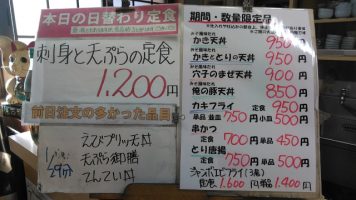 本日の日替わり定食
刺身と天ぷらの定食
1,200円
前日注文の多かった品目
えびプリッ天丼
天ぷら御膳
てんてい丼
期間・数量限定品
かき天丼 950
かきととりの天丼 950円
穴子のませ天丼 900円
俺の豚天丼 850円
カキフライ 定食 950円
単品 並皿 750円 小皿 500円
串かつ
定食 700円 単品 450円
とり唐揚
定食 750円 単品 500円
ジャンボエビフライ(3尾)
定食 1,600円 単品 1,400円